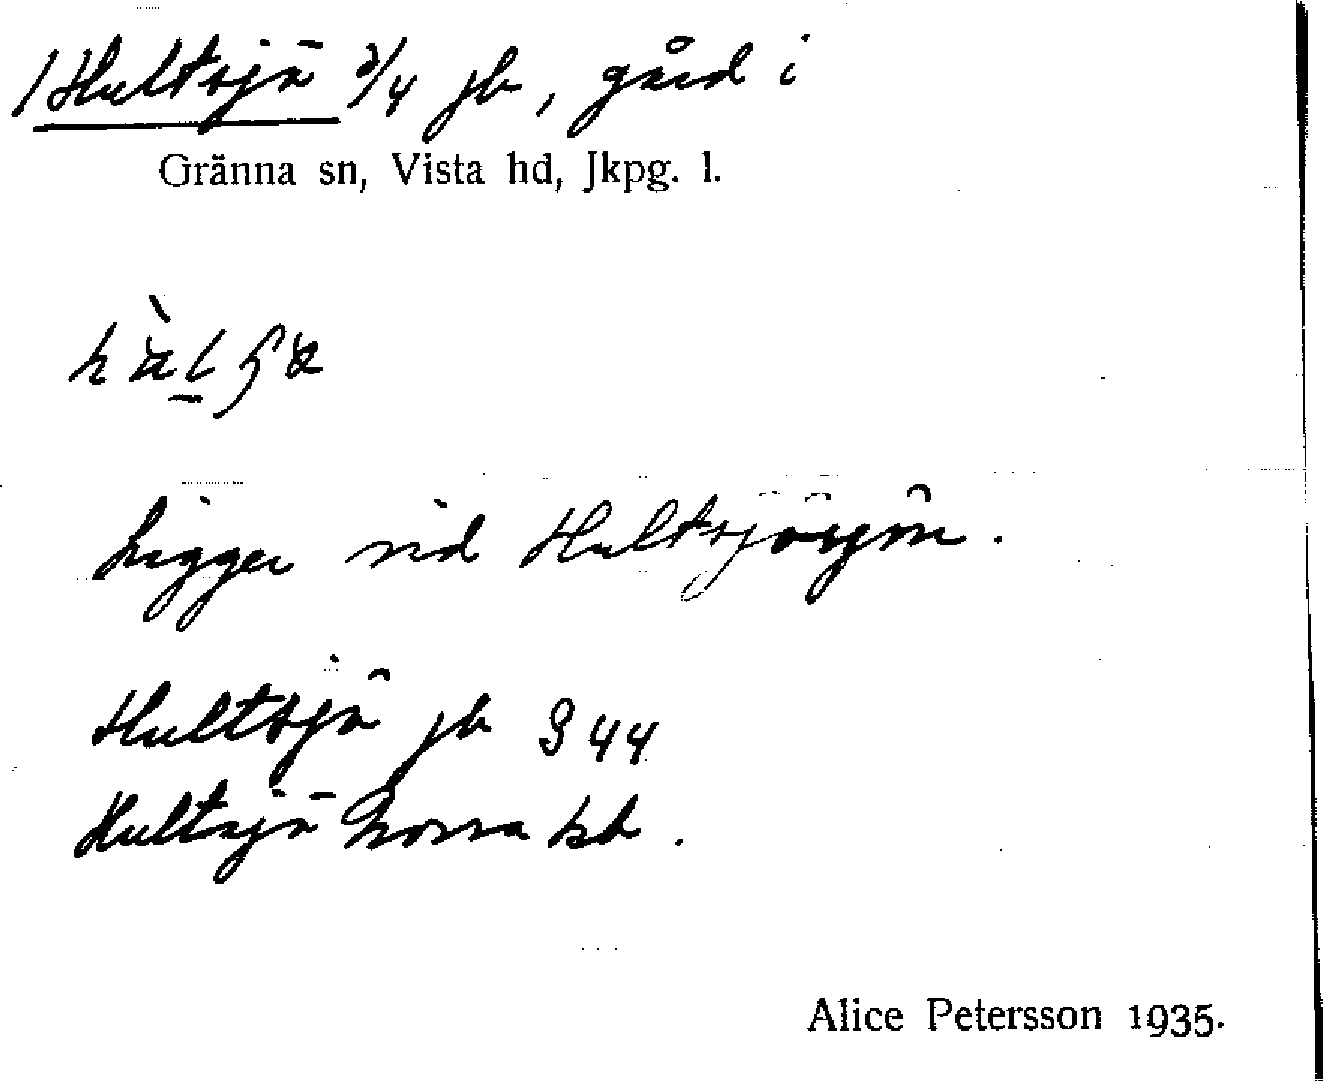 1 Hultsjö 3/4 jb, gård i
Gränna sn, Vista hd, Jkpg. l.
Ligger vid Hultsjösjön.
Hultsjö jb S 44
Hultsjö Norra kb.
Alice Petersson 1935.